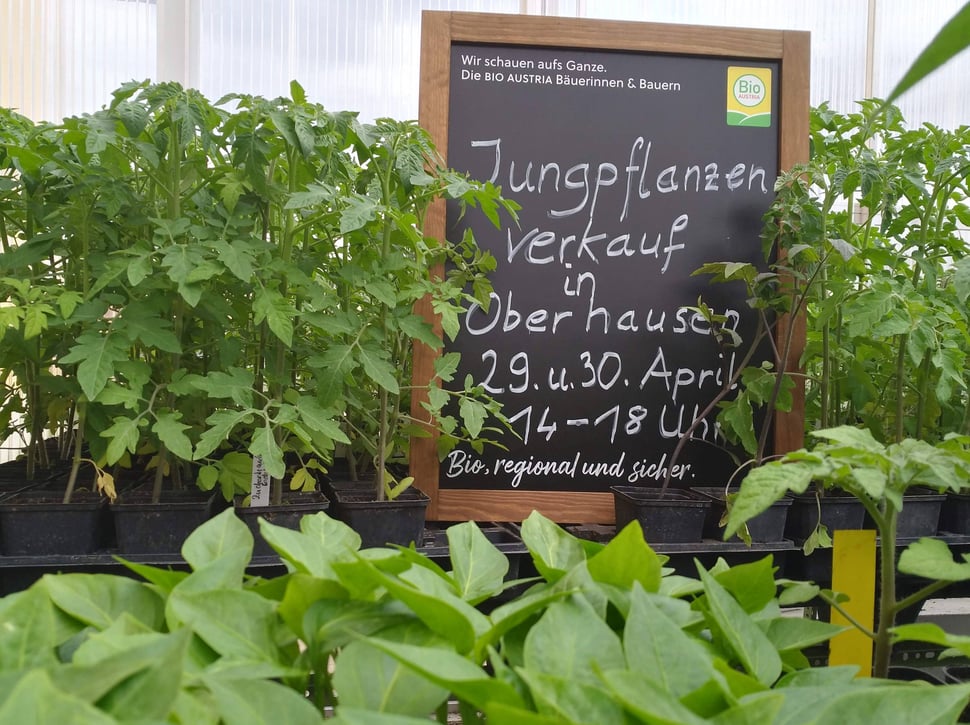 Wir schauen aufs Ganze.
Die BIO AUSTRIA Bäuerinnen & Bauern
Bio
AUSTRIA
Jungpflanzen
verkauf
in
Oberhausen
29. u. 30. April
14-18 Uhr
Bio, regional und sicher.